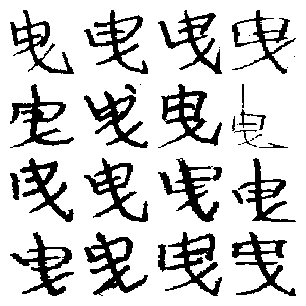 曳曳曳曳
曳曳曳曳
曳曳曳曳
曳曳曳曳